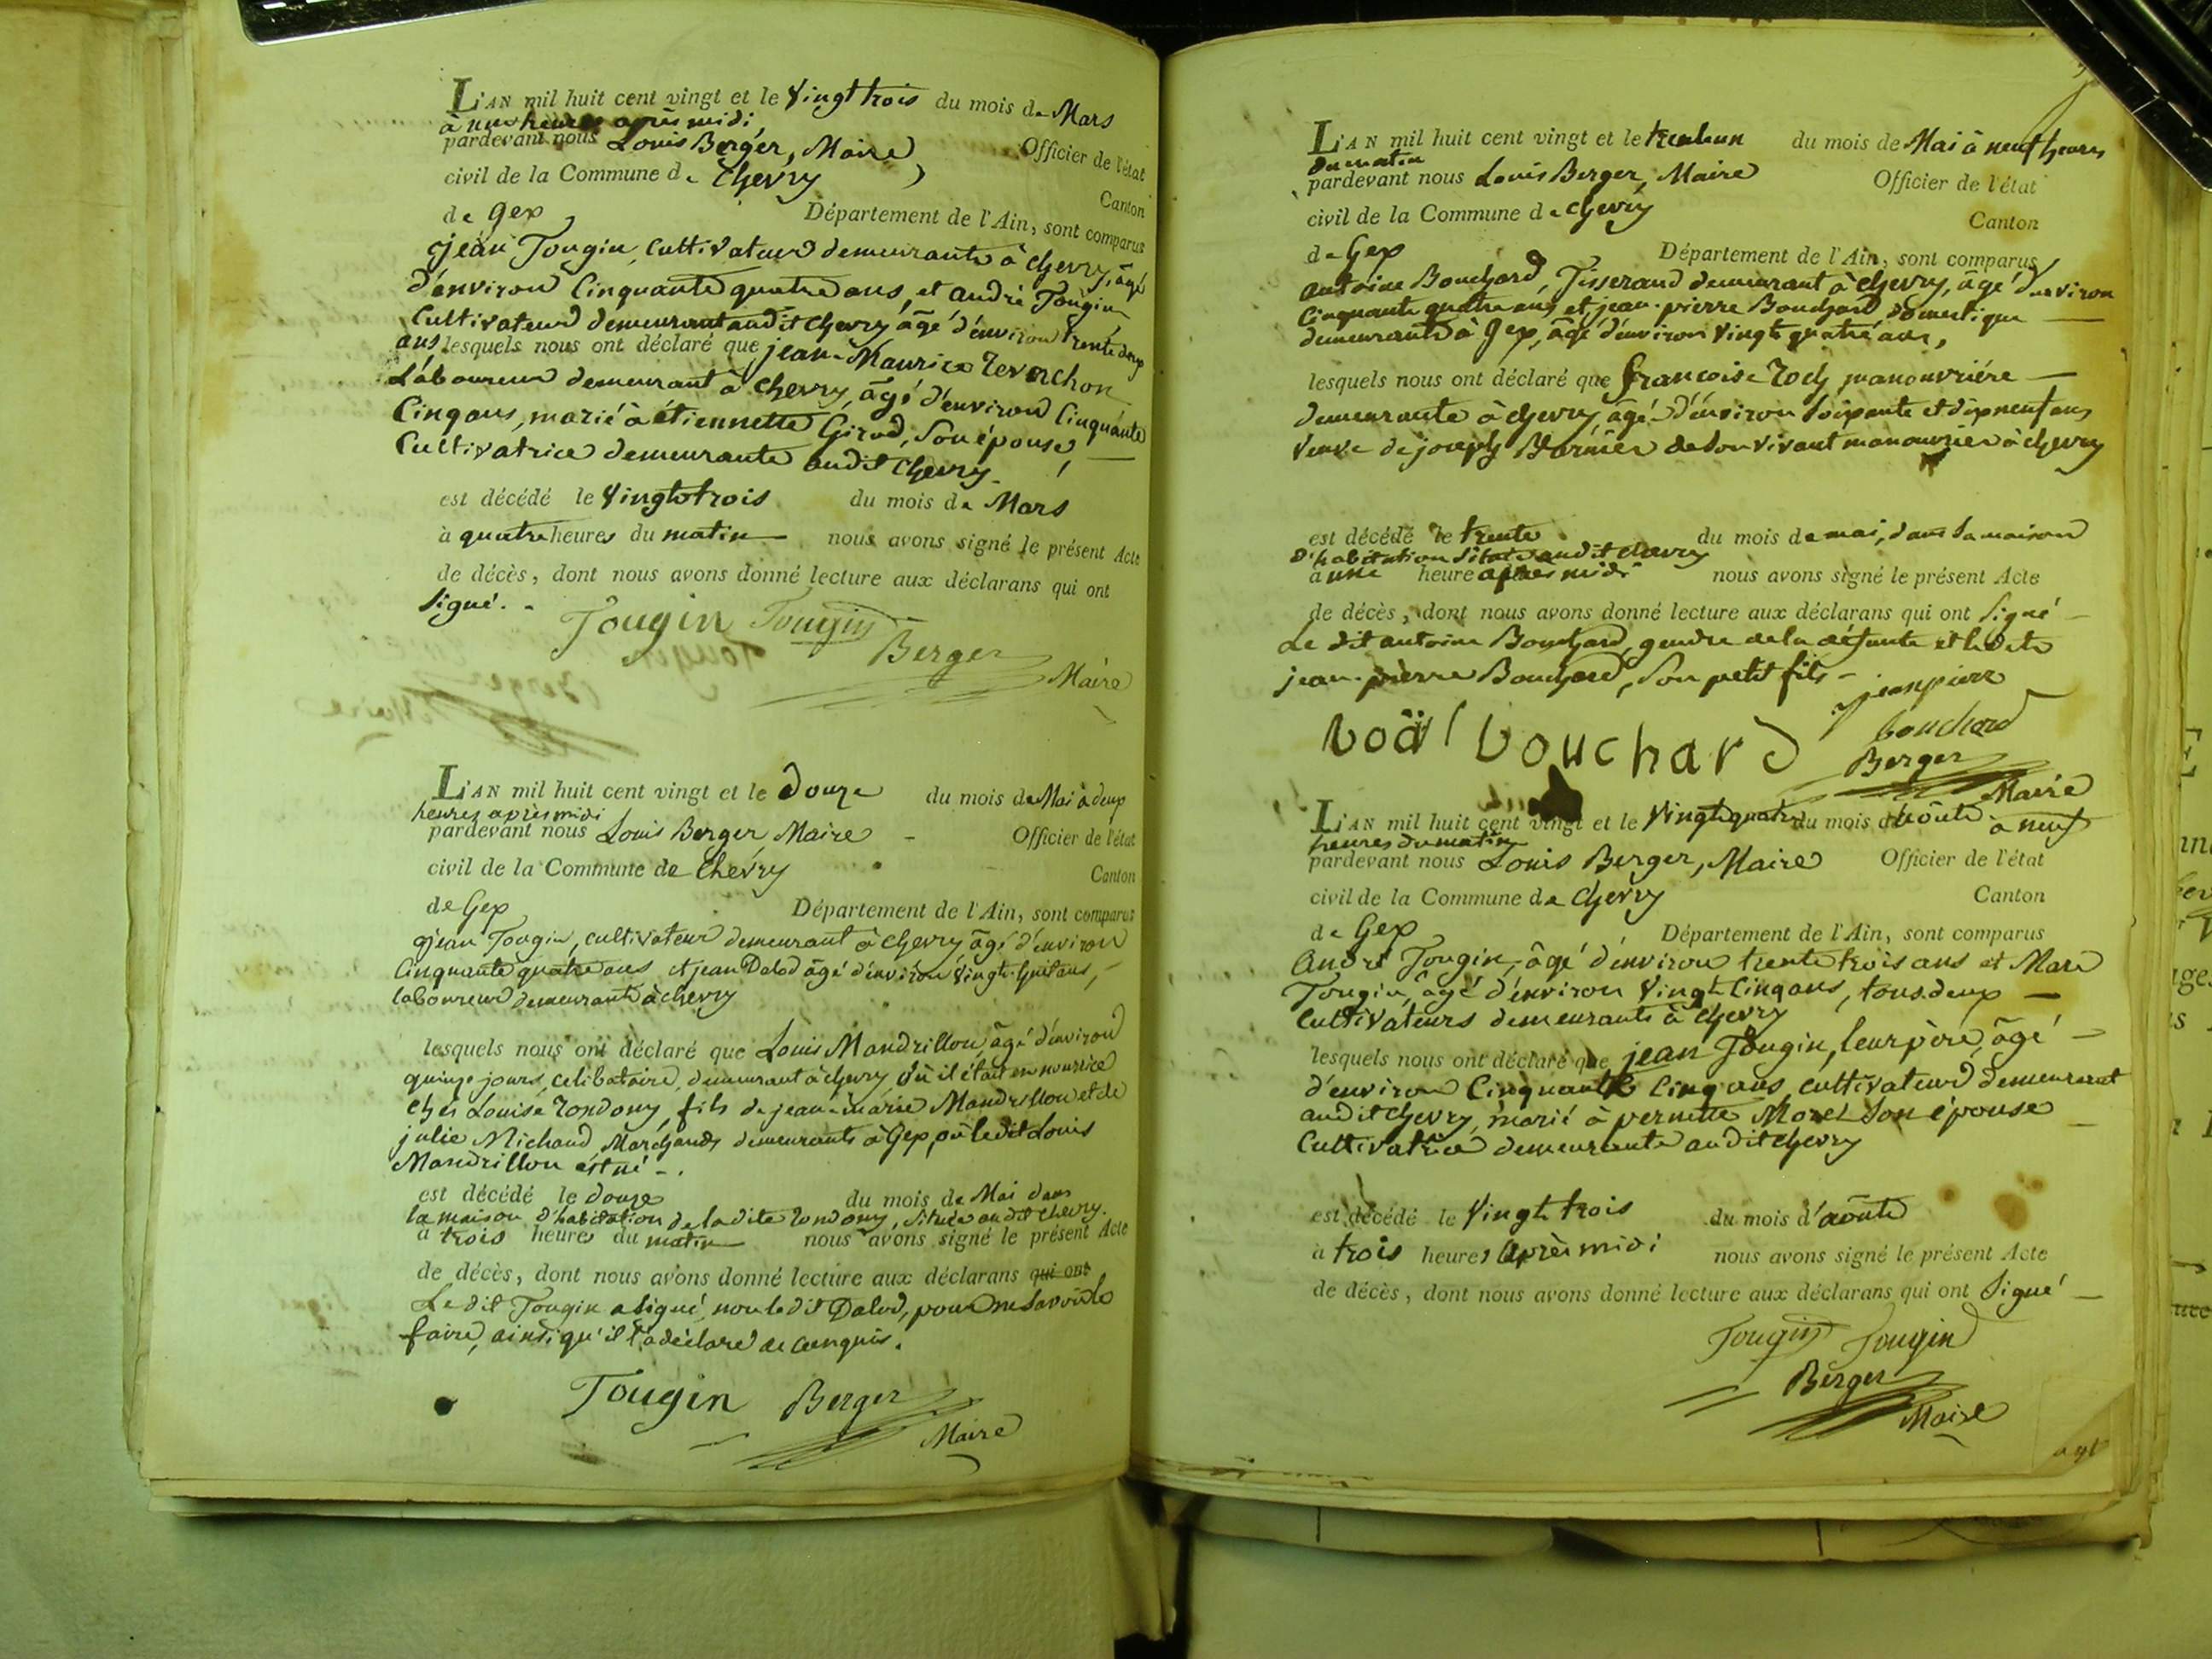 L'AN mil huit cent vingt et le Vingt trois du mois de Mars
à une heure après midi,
pardevant nous Louis Berger, Maire Officier de l'état
civil de la Commune de Chevry Canton
de Gex Département de l'Ain, sont comparus
jean Tougin, cultivateur demeurante à chevry, âgé
d'environ Cinquante quatre ans, et andré Tougin
Cultivateur demeurant audit chevry âgé d'environ trente deux
ans lesquels nous ont déclaré que jean-Maurice Reverchon
Laboureur demeurant à chevry, âgé d'environ Cinquante
Cinq ans, marié à étiennette Girod, Son épouse
Cultivatrice demeurante audit chevry.
est décédé le Vingt trois du mois de Mars
à quatre heures du matin nous avons signé le présent Acte
de décès, dont nous avons donné lecture aux déclarans qui ont
Signé.
Tougin Tougin
Berger
Maire
L'AN mil huit cent vingt et le Douze du mois de Mai à deux
heures après midi
pardevant nous Louis Berger, Maire Officier de l'état
civil de la Commune de Chevry Canton
de Gex Département de l'Ain, sont comparus
jean Tougin, cultivateur demeurant à chevry âgé d'environ
Cinquante quatre ans et jean Dalod âgé d'environ Vingt huit ans,
laboureur demeurants à chevry
lesquels nous ont déclaré que Louis Mandrillon, âgé d'environ
quinze jours, celibataire, demeurant à chevry où il était en nourrice
chés Louise Rondony, fils de jean-marie Mandrillon et de
julie Michaud, Marchands demeurants à Gex, où le dit Louis
Mandrillon est né.
est décédé le douze du mois de Mai dans
la maison d'habitation de ladite Rondony, située audit chevry.
à trois heures du matin nous avons signé le présent Acte
de décès, dont nous avons donné lecture aux déclarans qui ont
Le dit Tougin a signé, non le dit Dalod, pour ne savoir le
faire, ainsi qu'il l'a déclaré de ce enquis.
Tougin Berger
Maire
L'AN mil huit cent vingt et le trente un du mois de Mai à neuf heures
du matin
pardevant nous Louis Berger, Maire Officier de l'état
civil de la Commune de chevry Canton
de Gex Département de l'Ain, sont comparus
antoine Bouchard, Tisserand demeurant à chevry, âgé d'environ
Cinquante quatre ans, et, jean-pierre Bouchard domestique
demeurants à Gex, âgé d'environ Vingt quatre ans,
lesquels nous ont déclaré que françoise Roch manouvrière
demeurante à chevry, âgé d'environ Soixante et dix neuf ans
Veuve de joseph de son vivant manouvrier à chevry
est décédé le trente du mois de mai, dans sa maison
d'habitation située audit chevry
à une heure après midi nous avons signé le présent Acte
de décès, dont nous avons donné lecture aux déclarans qui ont Signé
Le dit antoine Bouchard, gendre de la défunte et ledit
jean-pierre Bouchard, Son petit fils
jeanpierre
bouchard
bouchard
Berger
Maire
L'AN mil huit cent vingt et le Vingt quatre du mois d'aoûte à neuf
heures du matin
pardevant nous Louis Berger, Maire Officier de l'état
civil de la Commune de Chevry Canton
de Gex Département de l'Ain, sont comparus
André Tougin, âgé d'environ trente trois ans et Marc
Tougin, âgé d'environ Vingt Cinq ans, tous deux
Cultivateurs demeurants à chevry
lesquels nous ont déclaré que jean Tougin, leur père, âgé
d'environ Cinquante Cinq ans, cultivateur demeurant
audit chevry, marié à pernette Morel Son épouse
Cultivatrice demeurante audit chevry
est décédé le Vingt trois du mois d'aoûte
à trois heures après midi nous avons signé le présent Acte
de décès, dont nous avons donné lecture aux déclarans qui ont Signé
Tougin Tougin
Berger
Maire